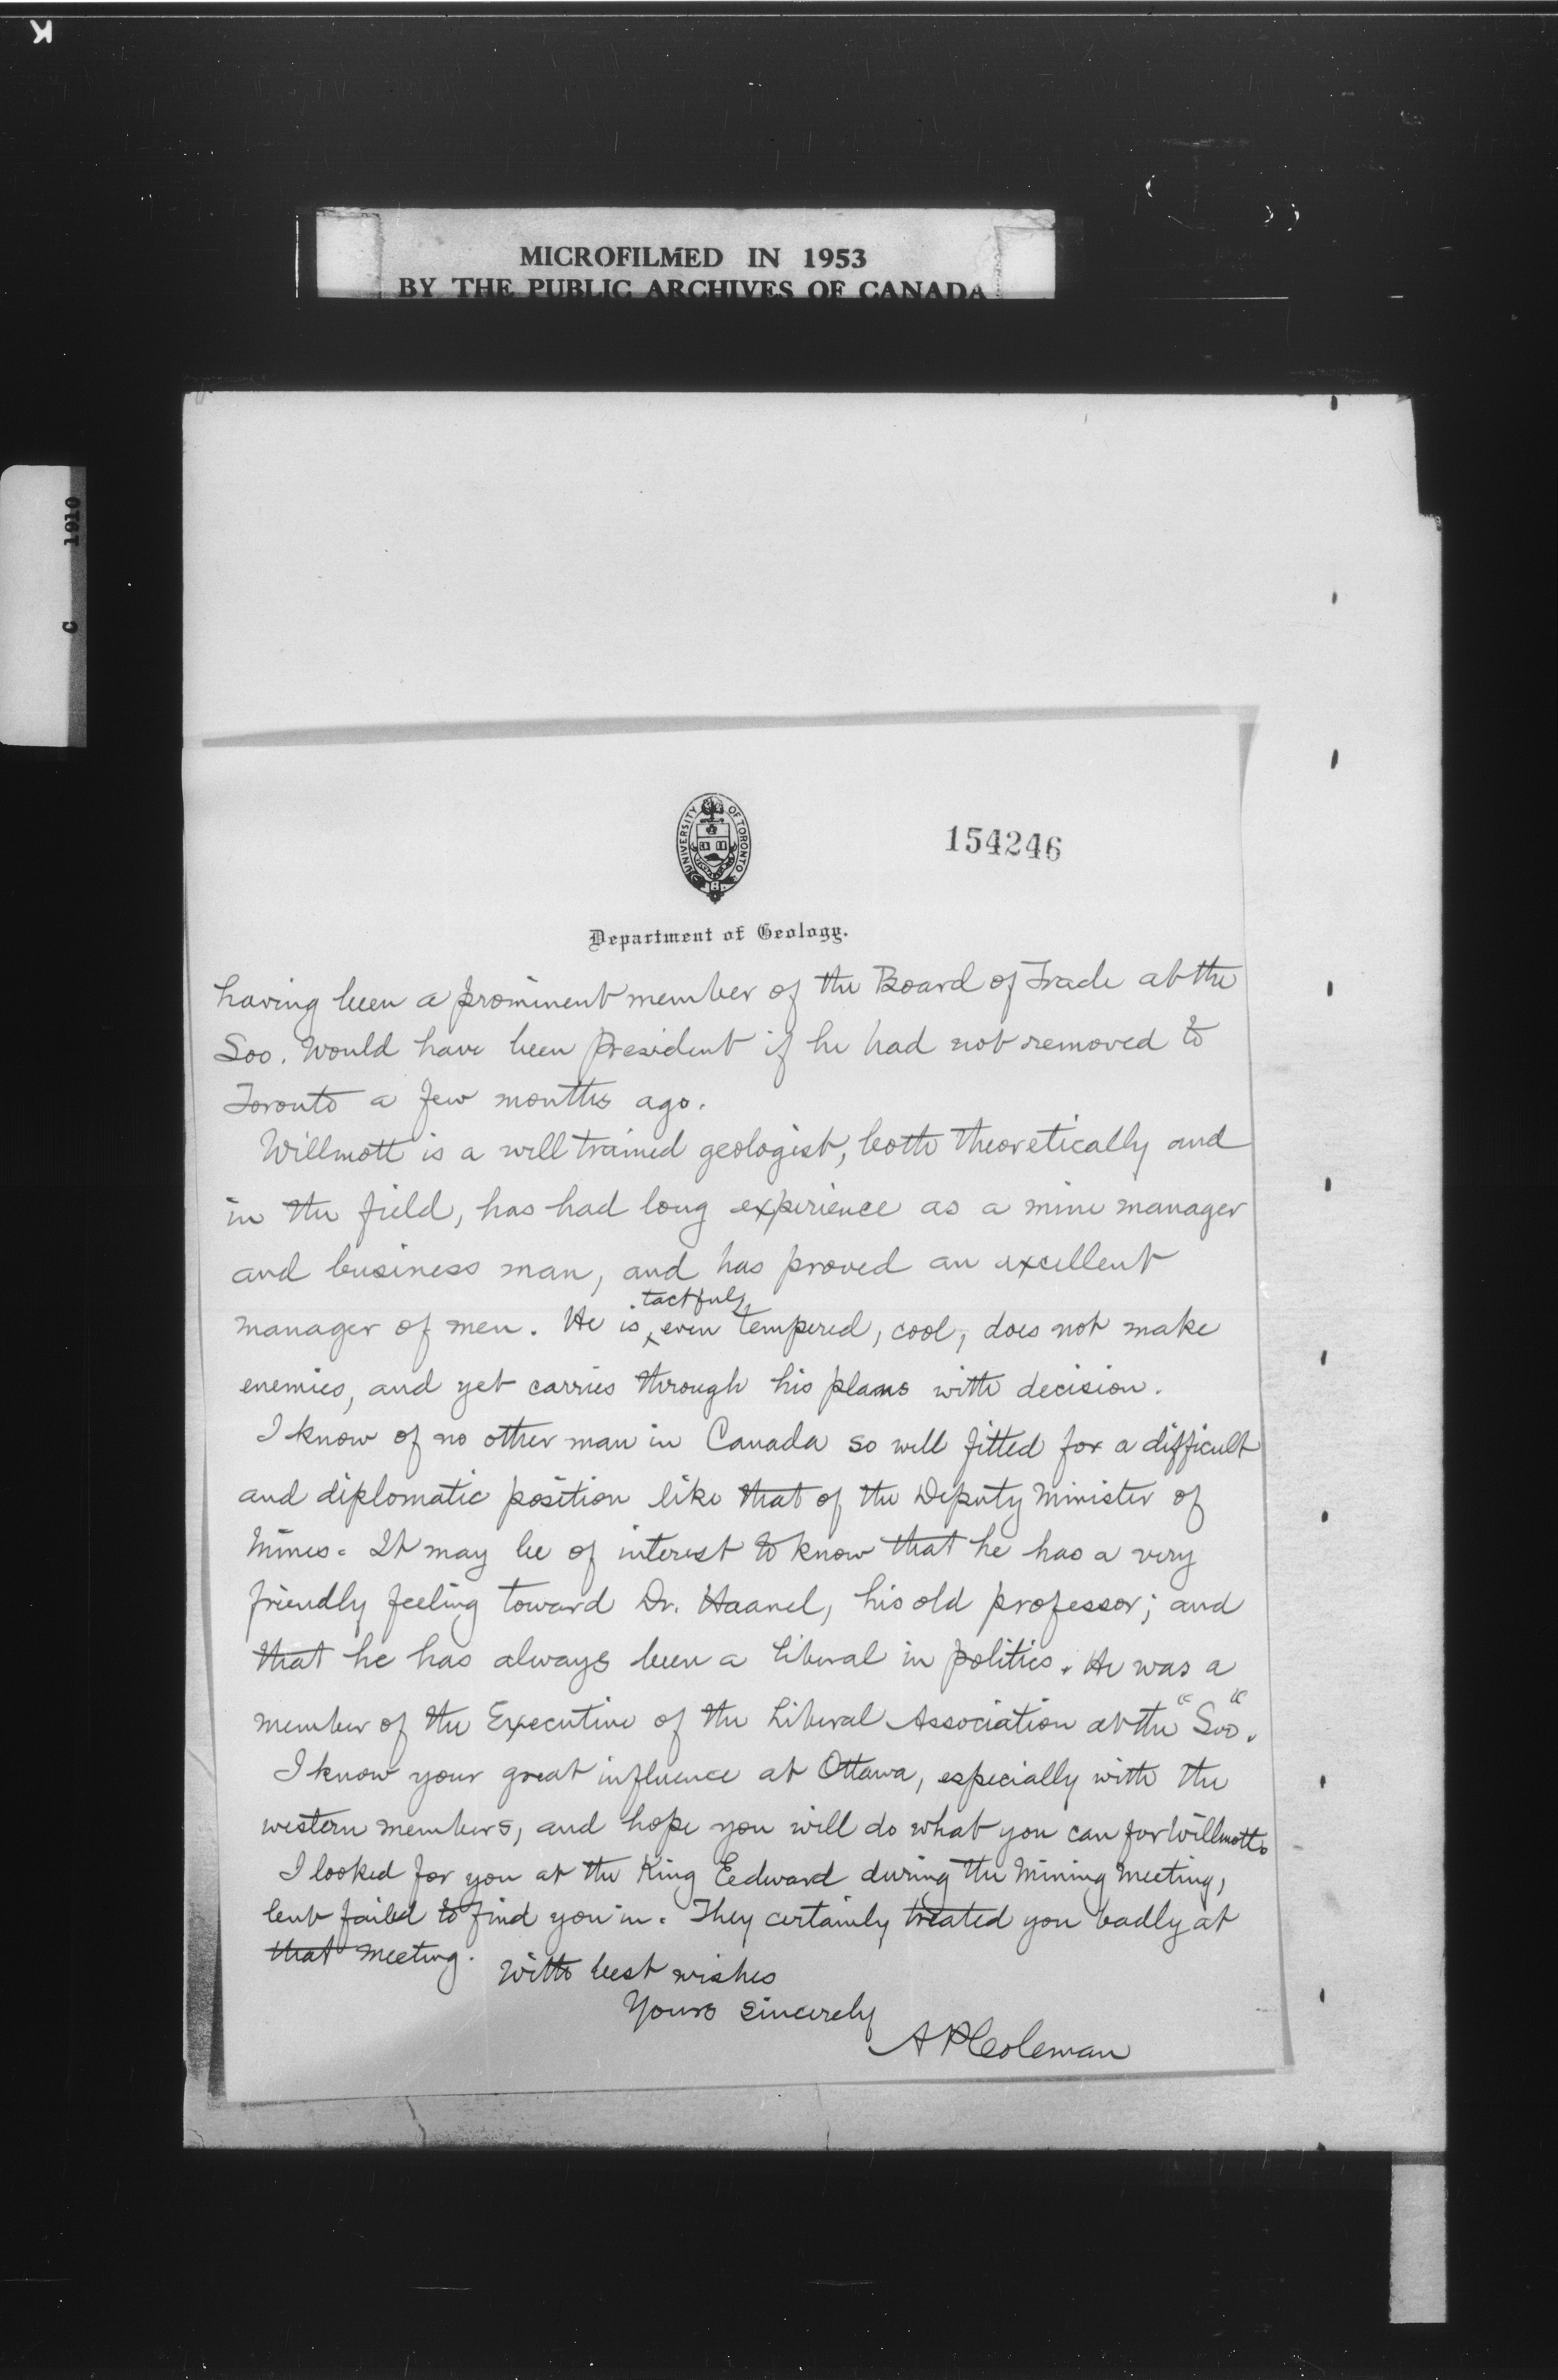 K
MICROFILMED IN 1953
BY THE PUBLIC ARCHIVES OF CANADA
C 1910
UNIVERSITY OF TORONTO
154246
Department of Geology.
having been a prominent member of the Board of Trade at the
Soo. Would have been President if he had not removed to
Toronto a few months ago.
Willmott is a well trained geologist, both theoretically and
in the field, has had long experience as a mine manager
and business man, and has proved an excellent
manager of men. He is tactful, even tempered, cool, does not make
enemies, and yet carries through his plans with decision.
I know of no other man in Canada so well fitted for a difficult
and diplomatic position like that of the Deputy Minister of
Mines. It may be of interest to know that he has a very
friendly feeling toward Dr. Haanel, his old professor; and
that he has always been a Liberal in politics. He was a
member of the Executive of the Liberal Association at the "Soo".
I know your great influence at Ottawa, especially with the
western members, and hope you will do what you can for Willmott.
I looked for you at the King Eedward during the Mining Meeting,
but failed to find you in. They certainly treated you badly at
that meeting.
With best wishes
Yours sincerely
A P Coleman